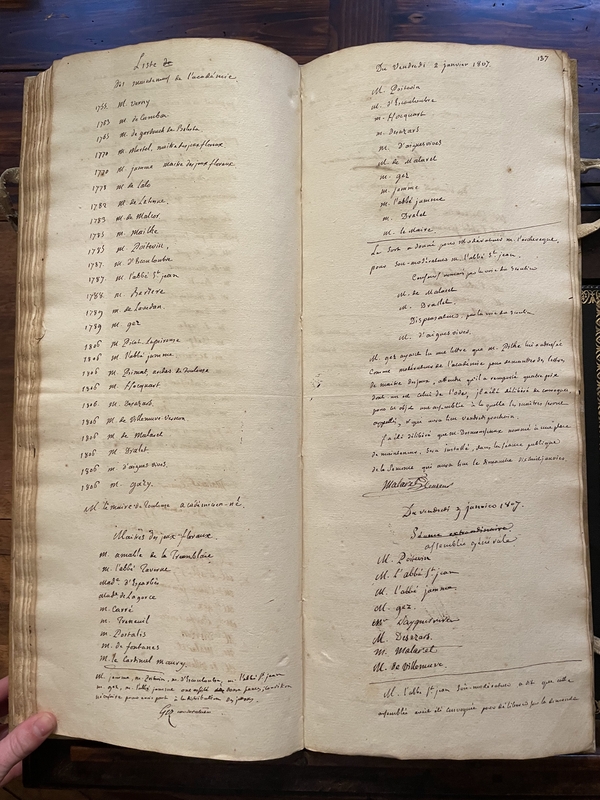 Liste
des mainteneurs de l'académie.
1755 M. Verny
1763 M. de Cambon
1765 M. de
1770 M. Martel, maitre des jeux floraux
1770 M. jamme maitre des jeux floraux
1778 M. de Lalo
1782 M. de
1783. M. de Malcor.
1785 M. Mailhe
1785 M. Poitevin.
1787. M. d'Escouloubre
1787. M. l'abbé St. jean
1788. M.
1789 M. de
1789 M. gez
1806 M. Picot Lapeirouse
1806 M. l'abbé jamme.
1806 M. Primat, de Toulouse
1806 M. Hocquart
1806. M. Desazars.
1806 M. de Villeneuve
1806 M. de Malaret
1806 M. Dralet
1806 M. d'aiguesvives.
1806 M. gary.
M. le maire de Toulouse académicien-né.
Maitres des jeux-floraux.
M. amable de la Tramblaie
M. l'abbé Taverne
Made. d'Esparbès
Made. de Lagorce
M. Carré
M. Treneuil
M. Portalis
M. de fontanes
M. le Cardinal Maury.
M. jamme, M. Poitevin, M. d'Escouloubre, M. l'abbé St. jean
M. gez, M. l'abbé jamme
à la distribution des
Gez
137
Du Vendredi 2 janvier 1807.
M. Poitevin
M. d'Escouloubre
M. Hocquart
M. Desazars
M. d'aiguesvives
M. de Malaret
M. gez
M. jamme
M. l'abbé jamme
M. Dralet
M. le Maire.
Le Sort a donné pour Modérateur M. l'archevêque,
pour Sous-modérateur M. l'abbé St. jean.
par la voie du Scrutin
M. de Malaret
M. Dralet.
par la voie du Scrutin
M. d'aiguesvives.
M. gez ayant lu une lettre que M. lui a
Comme de l'académie pour demander des lettres
de maitre des jeux, attendu qu'il a remporté quatre prix
dont un est celui de l'ode, il a été délibéré de convoquer
pour cet objet une assemblée à laquelle
appellés, et qui aura lieu vendredi prochain.
Il a été délibéré que M. nommé à une place
de mainteneur, sera installé, dans la séance publique
de la Semonce qui aura lieu le dimanche
Malaret
Du vendredi 9 janvier 1807.
Séance extraordinaire
assemblée générale
M. Poitevin
M. L'abbé St. jean
M. l'abbé jamme.
M. gez.
M. Dayguesvives
M. Desazars.
M. Malaret
M. de Villeneuve.
M. l'abbé St. jean Sous-modérateur a dit que cette
assemblée avait été convoquée pour délibérer sur la demande